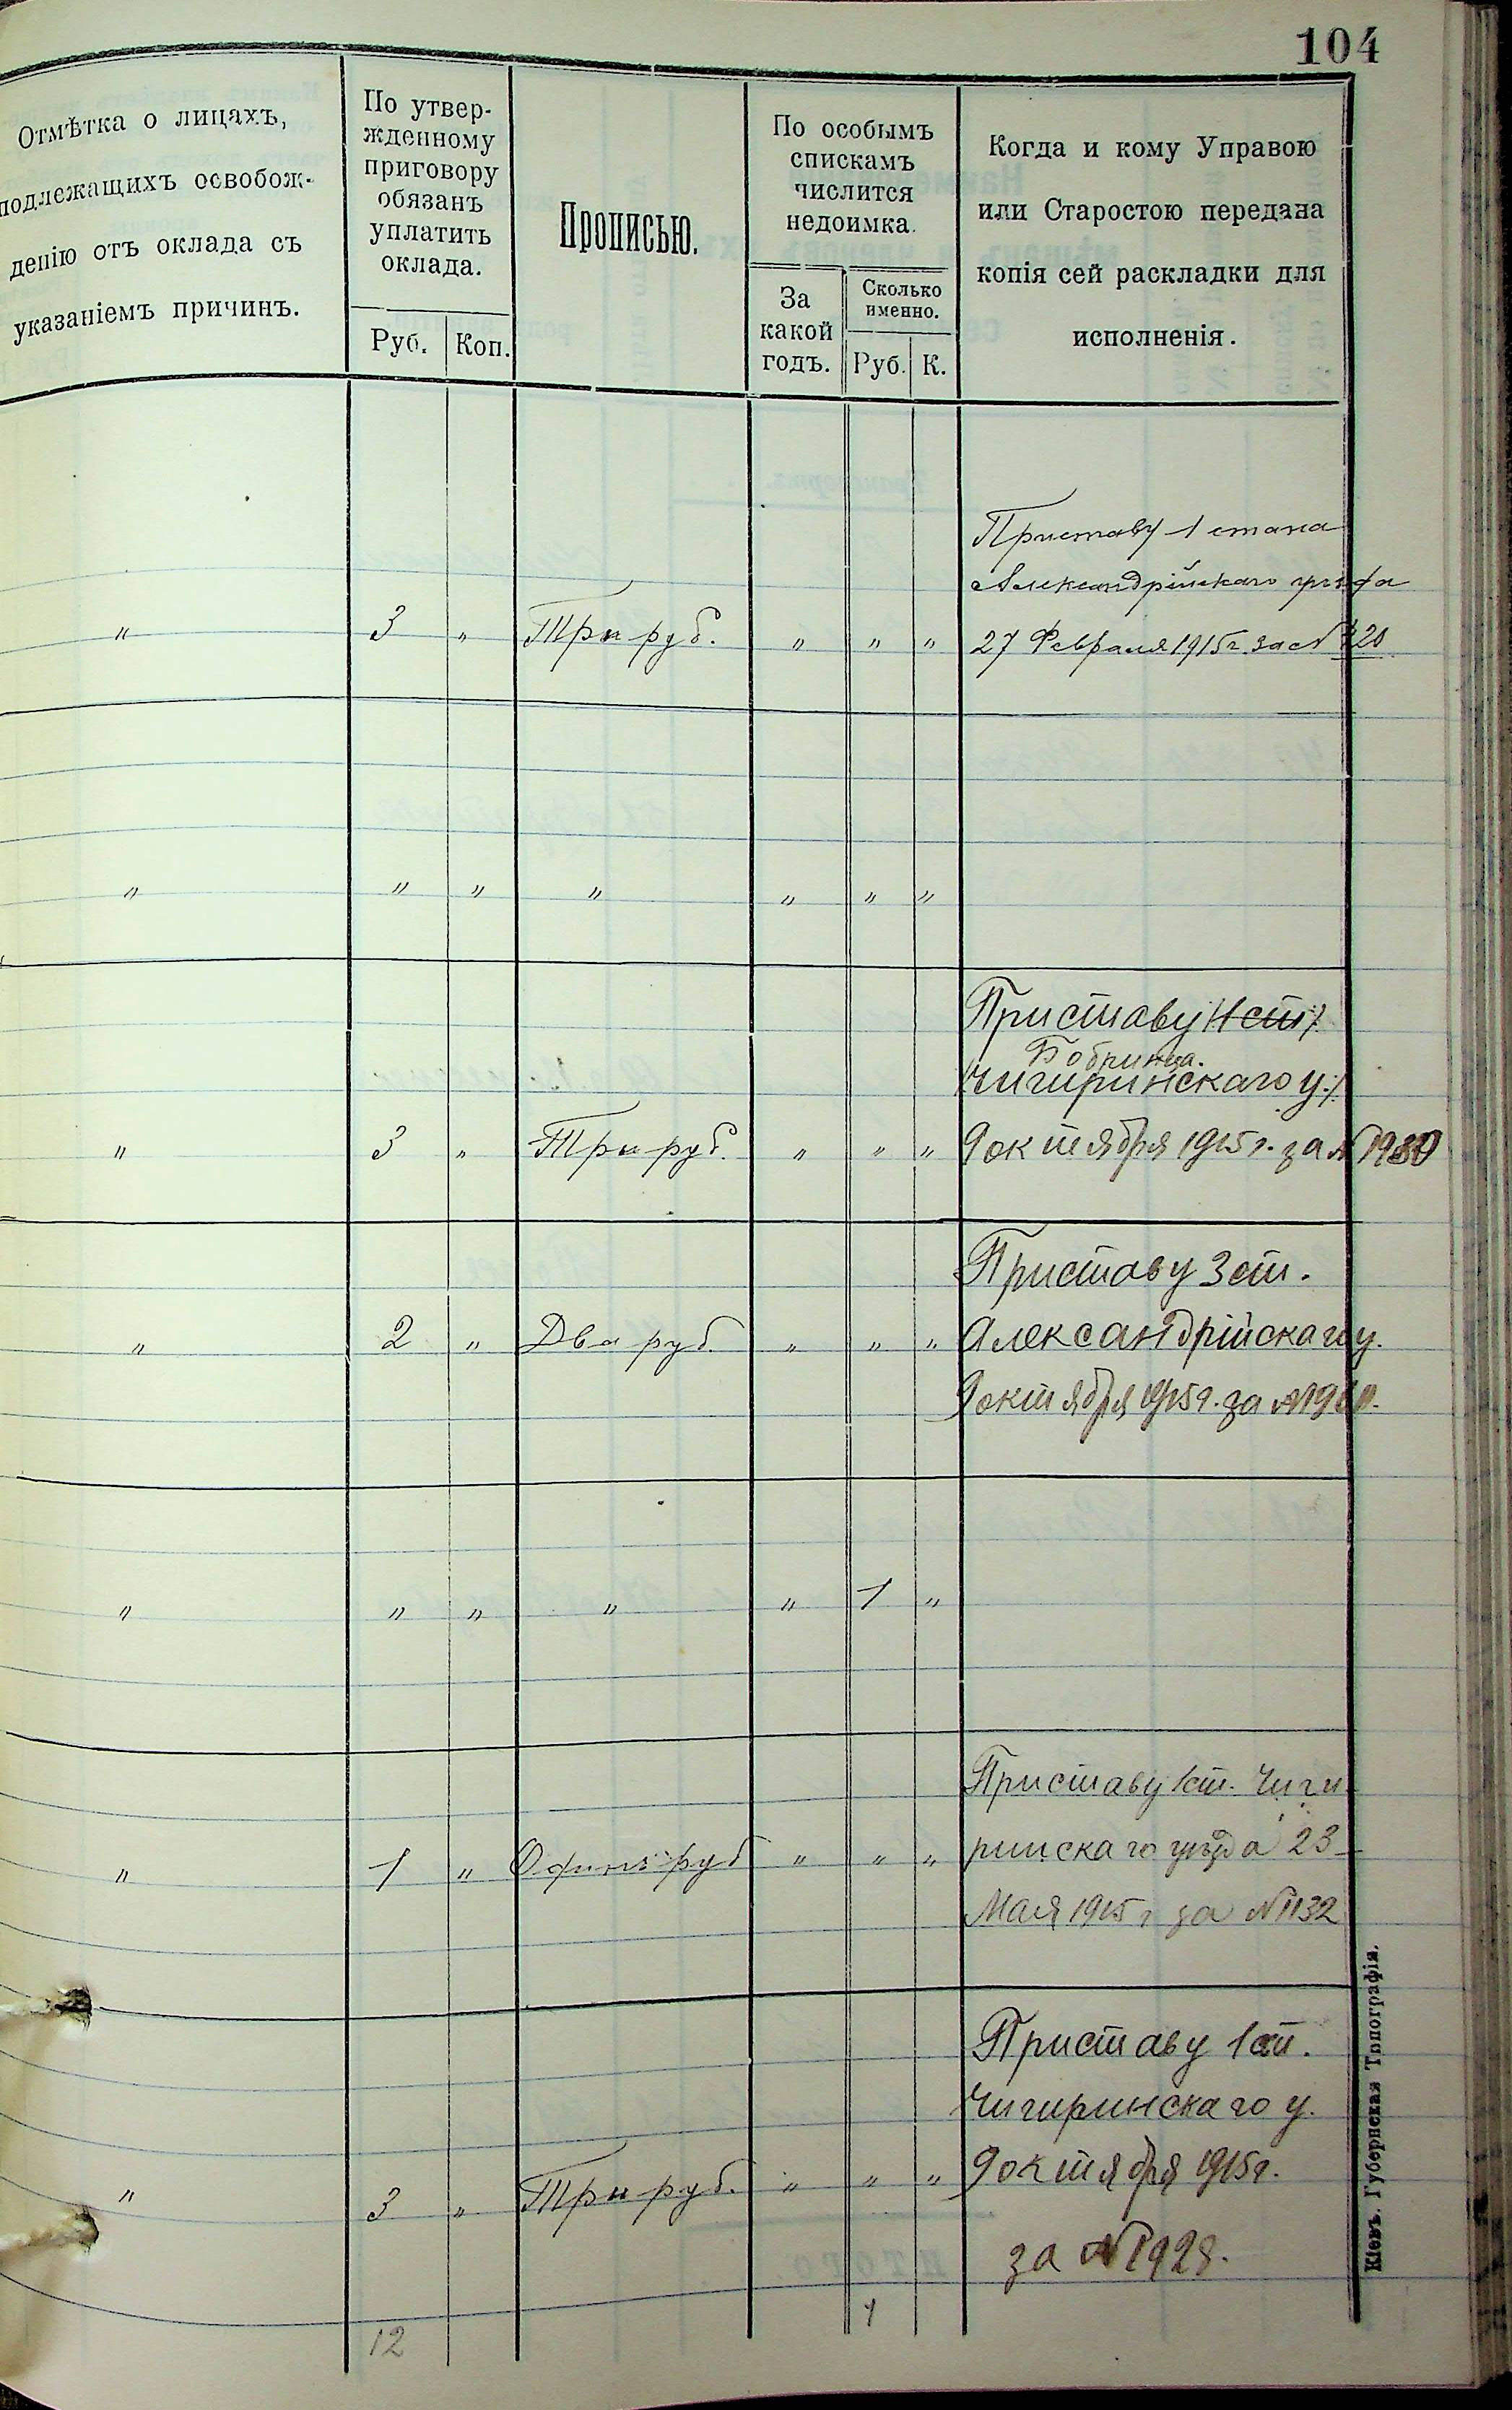 104
Отмѣтка о лицахъ,
подлежащихъ освобож-
денію отъ оклада съ
указаніемъ причинъ.
По утвер-
жденному
приговору
обязанъ
уплатить
оклада.
Руб.
Коп.
Прописью.
По особымъ
спискамъ
числится
недоимка.
За
какой
годъ.
Сколько
именно.
Руб.
К.
Когда и кому Управою
или Старостою передана
копія сей раскладки для
исполненія.
Приставу 1 стана
Александрійскаго уѣзда
" 3 " Три руб. " " " 27 Февраля 1915 г. за №
" " " " " " "
Приставу /1 ст/.
Бобринца.
/Чигиринскаго у./
" 3 " Три руб. " " " 9 октября 1915 г. за № 1930
Приставу 3 ст.
" 2 " Два руб. " " " Александрійскаго у.
9 октября 1915 г. за №
" " " " " 1 "
Приставу 1 ст. Чиги-
" 1 " Одинъ руб " " " ринскаго уѣзда 23
Мая 1915 г за № 1132
Приставу 1 ст.
Чигиринскаго у.
" 3 " Три руб. " " " 9 октября 1915 г.
за № 1928.
12 1
Кіевъ. Губернская Типографія.